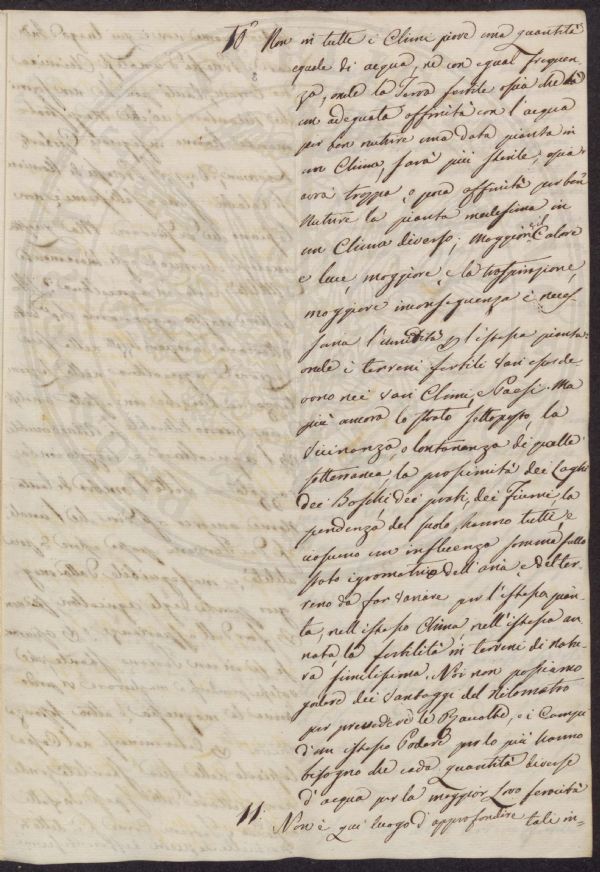 10.° Non in tutte i Climi piove una quantità
eguale di acqua, nè con egual frequen
za, onde la Terra fertile ossia che hà
un adequata affinità con l'acqua
per ben nutrire una data pianta in
un Clima, sarà più sterile, ossia
avrà troppa o poca affinità per ben
nutrire la pianta medesima in
un Clima diverso; maggior è il Calore
e luce, maggiore è la traspirazione,
maggiore in conseguenza è neces
saria l'umidità p l'istessa pianta
onde i terreni fertili vari esser de-
vono nei vari Climi, e Paesi. Ma
più ancora lo strato sottoposto, la
Vicinanza, o lontananza di quelle
sotterranea, la prossimità dei Laghi
dei Boschi dei prati, dei Fiumi, la
pendenza del suolo, hanno tutte e
ciascuno un influenza somma sullo
stato igrometrico dell'aria e del ter
reno da far variare per l'istessa pian
ta, nell'istesso Clima, nell'istessa an
nata, la fertilità in terreni di natu
ra similissima. Noi non possiamo
godere dei vantaggi del nilometro
per prevedere le Raccolte, e i Campi
d'un istesso Podere per lo più hanno
bisogno di quantità diverse
d'acqua per la maggior loro feracità
11. Non è qui luogo d'approfondire tale in=